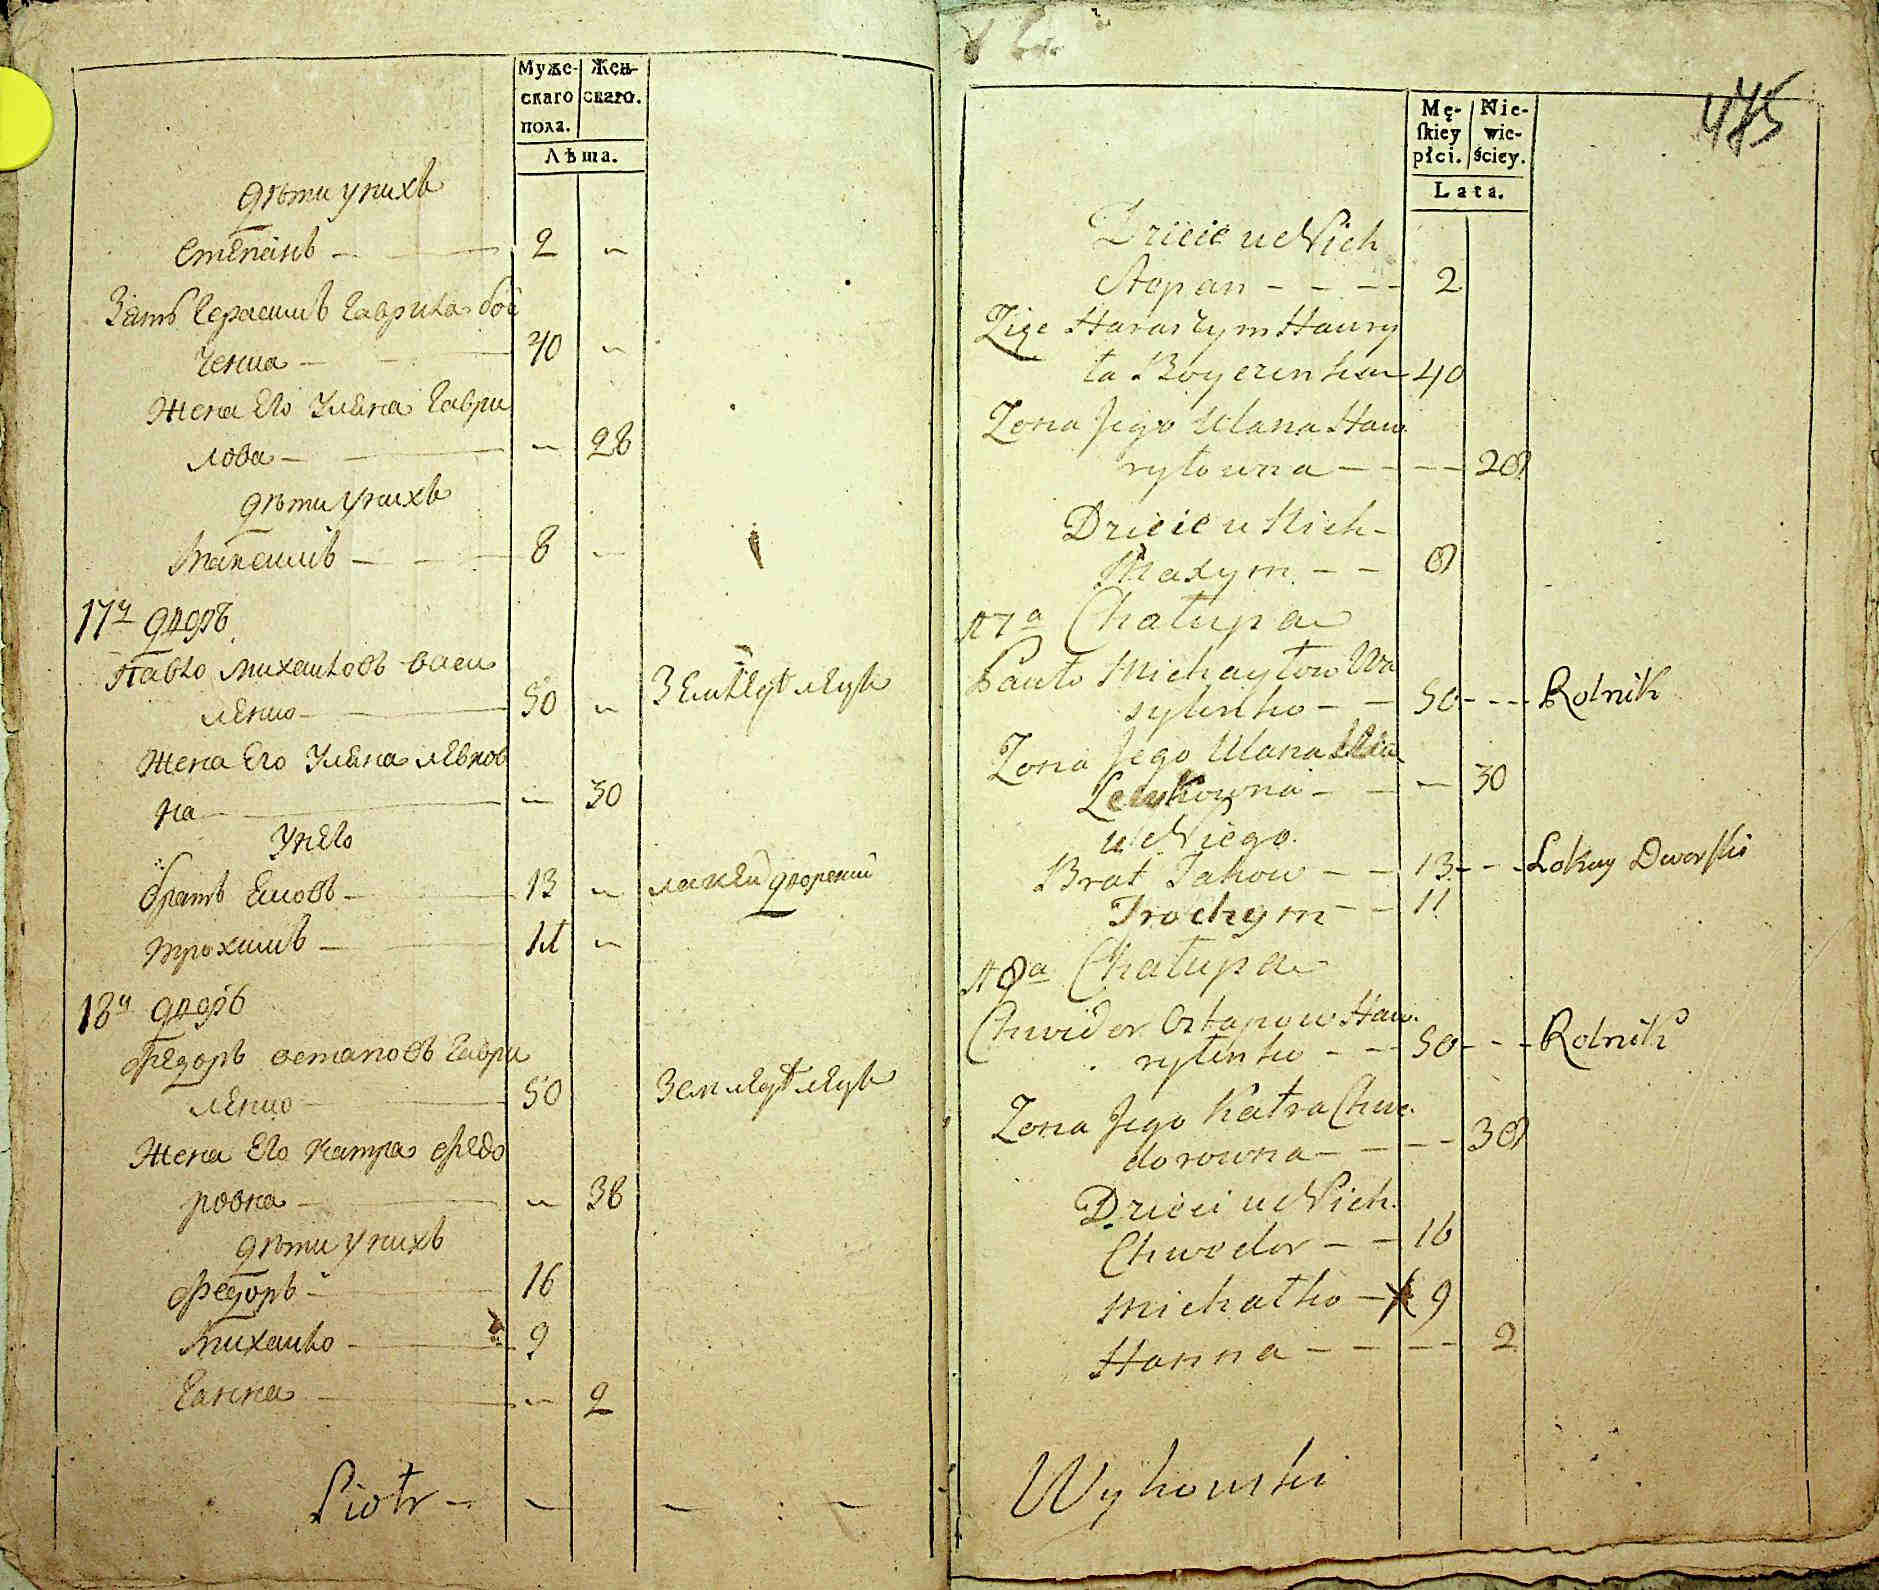 Муже-
скаго
пола.
Жен-
скаго.
Лѣта.
Дѣти у нихъ
Степанъ — 2 „
Зять Герасимъ Гаврила бое
ченка — 40 „
Жена Его Уляна Гаври
лова — „ 28
Дѣти у нихъ
Максимъ — 8 „
17й Дворъ
Павло Михайловъ Васи
ленко — 50 „ Земледѣлецъ
Жена Его Уляна Левков
на — „ 30
У него
братъ Яковъ — 13 „ лакей дворский
Трохимъ — 11 „
18й Дворъ
Федоръ Остаповъ Гаври
ленко — 50 Земледѣлецъ
Жена Его Катра Федо
ровна — „ 38
Дѣти у нихъ
Федоръ — 16
Михайло — 9
Ганна — „ 2
Piotr — — — —
475
Mę-
skiey
płci.
Nie-
wie-
ściey.
Lata.
Dziecie u Nich
Stepan — — 2
Zięc Haraszym Hawry
ła Boyczenko 40
Zona Jego Ulana Haw
ryłowna — — 28
Dziecie u Nich
Maxym — — 8
17a Chałupa
Pawło Michayłow Wa
sylenko — — 50 — — Rolnik
Zona Jego Ulana
Lewkowna — — 30
u Niego
Brat Jakow — — 13 — — Lokay Dworski
Trochym — — 11
18a Chałupa
Chwedor Ostapow Haw
rylenko — — 50 — — Rolnik
Zona Jego Katra Chwe
dorowna — — 38
Dzieci u Nich
Chwedor — — 16
Michałko — 9
Hanna — — — 2
Wyhowski